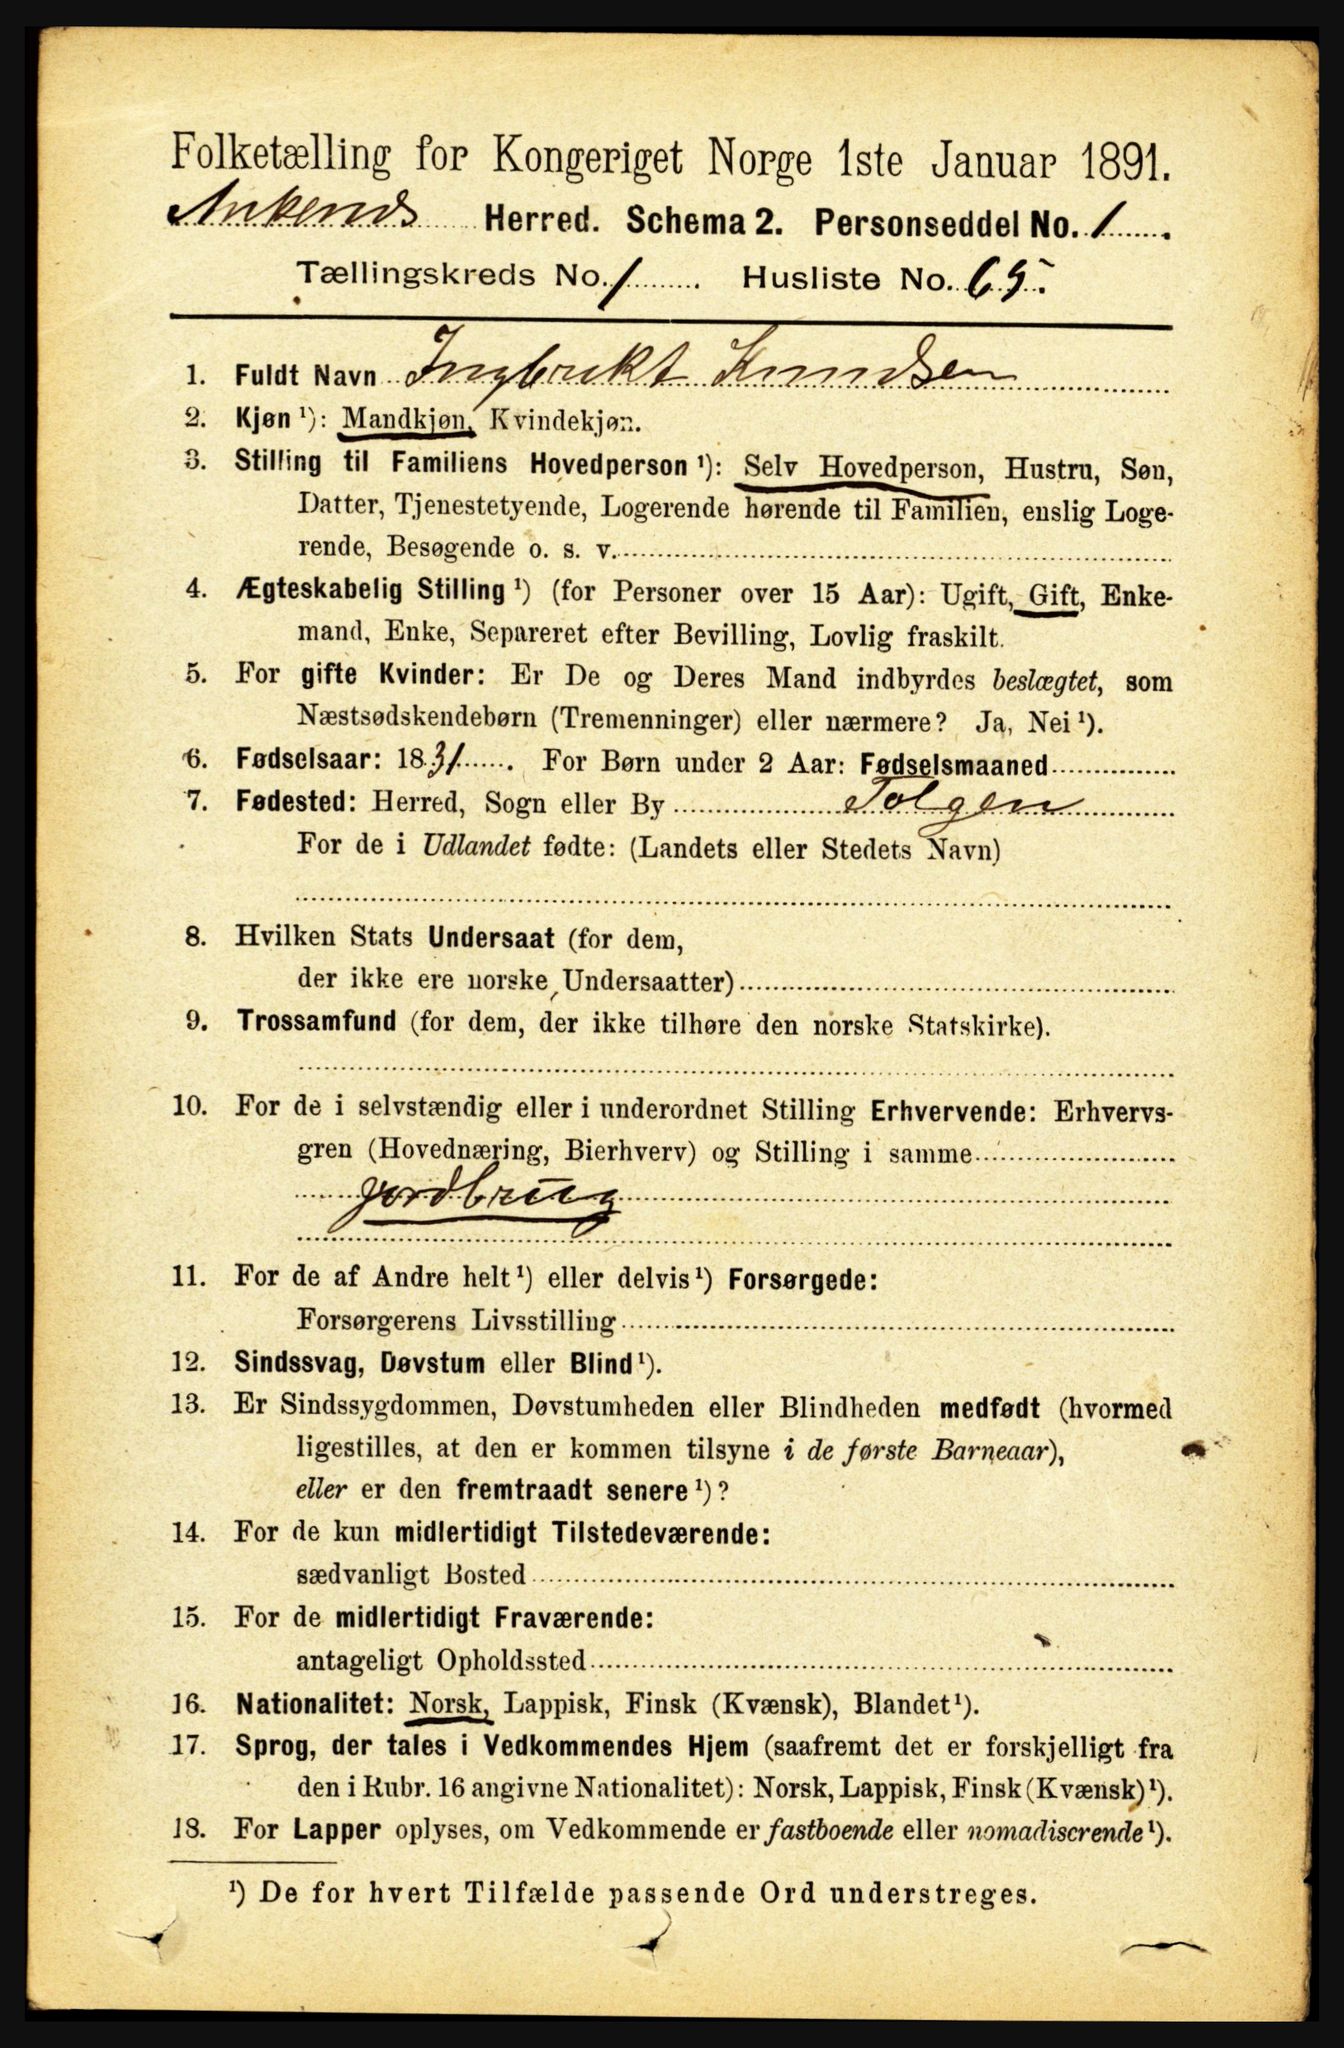 Folketælling for Kongeriget Norge 1ste Januar 1891.
Ankenes Herred. Schema 2. Personseddel No. 1
Tællingskreds No. 1 Husliste No. 65.
1. Fuldt Navn Ingbrekt Knudsen
2. Kjøn ¹): Mandkjøn, Kvindekjøn.
3. Stilling til Familiens Hovedperson ¹): Selv Hovedperson, Hustru, Søn,
Datter, Tjenestetyende, Logerende hørende til Familien, enslig Loge-
rende, Besøgende o. s. v.
4. Ægteskabelig Stilling ¹) (for Personer over 15 Aar): Ugift, Gift, Enke-
mand, Enke, Separeret efter Bevilling, Lovlig fraskilt.
5. For gifte Kvinder: Er De og Deres Mand indbyrdes beslægtet, som
Næstsødskendebørn (Tremenninger) eller nærmere? Ja, Nei ¹).
6. Fødselsaar: 1831. For Børn under 2 Aar: Fødselsmaaned
7. Fødested: Herred, Sogn eller By Tolgen
For de i Udlandet fødte: (Landets eller Stedets Navn)
8. Hvilken Stats Undersaat (for dem,
der ikke ere norske Undersaatter)
9. Trossamfund (for dem, der ikke tilhøre den norske Statskirke).
10. For de i selvstændig eller i underordnet Stilling Erhvervende: Erhvervs-
gren (Hovednæring, Bierhverv) og Stilling i samme
jordbrug
11. For de af Andre helt ¹) eller delvis ¹) Forsørgede:
Forsørgerens Livsstilling
12. Sindssvag, Døvstum eller Blind ¹).
13. Er Sindssygdommen, Døvstumheden eller Blindheden medfødt (hvormed
ligestilles, at den er kommen tilsyne i de første Barneaar),
eller er den fremtraadt senere ¹)?
14. For de kun midlertidigt Tilstedeværende:
sædvanligt Bosted
15. For de midlertidigt Fraværende:
antageligt Opholdssted
16. Nationalitet: Norsk, Lappisk, Finsk (Kvænsk), Blandet ¹).
17. Sprog, der tales i Vedkommendes Hjem (saafremt det er forskjelligt fra
den i Rubr. 16 angivne Nationalitet): Norsk, Lappisk, Finsk (Kvænsk) ¹).
18. For Lapper oplyses, om Vedkommende er fastboende eller nomadiserende ¹).
¹) De for hvert Tilfælde passende Ord understreges.